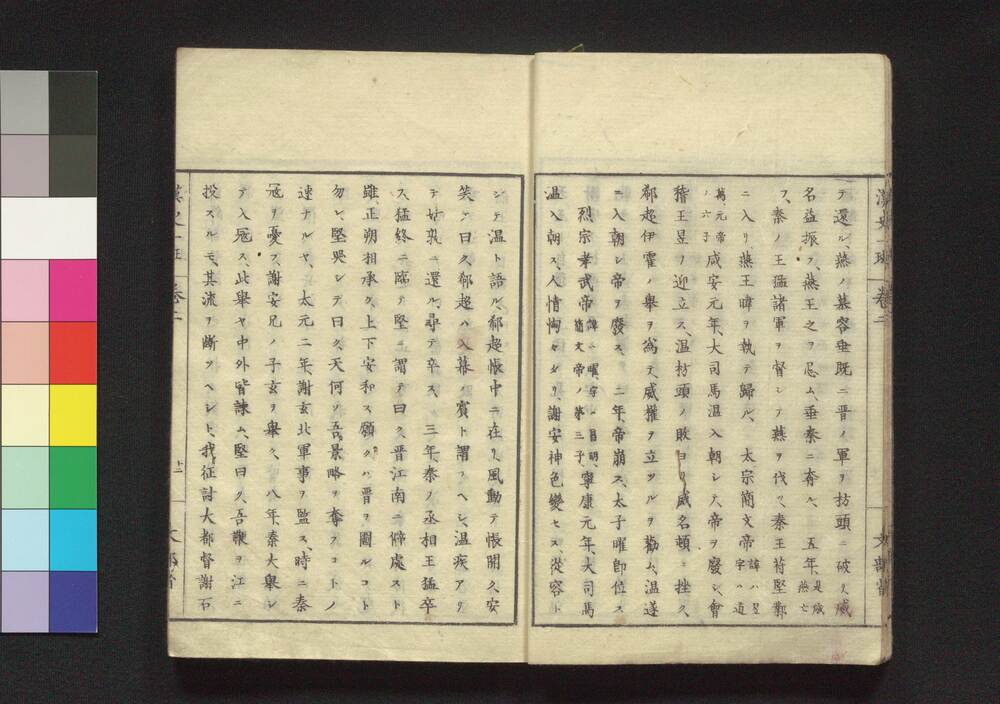 テ還ル、燕ノ慕容垂既ニ晋ノ軍ヲ枋頭ニ破リ、威
名益振フ、燕王之ヲ忌ム、垂秦ニ奔ル、 五年、是歳燕亡
フ、秦ノ王猛諸軍ヲ督シテ燕ヲ伐ツ、秦王苻堅鄴
ニ入リ、燕王暐ヲ執テ歸ル、 太宗簡文帝諱ハ昱字ハ道
萬、元帝ノ六子咸安元年、大司馬温入朝シ、大帝ヲ廢シ、會
稽王昱ノ迎立ス、温枋頭ノ敗ヨリ威名頓ニ挫ク、
郗超伊霍ノ舉ヲ爲テ威權ヲ立ツルヲ勸ム、温遂
ニ入朝シ、帝ヲ廢ス、 二年、帝崩ス、太子曜即位ス
烈宗孝武帝諱ハ曜字ハ昌明、簡文帝ノ第三子、寧康元年、大司馬
温入朝ス、人情恟々タリ、謝安神色變セス、從容ト
シテ温ト語ル、郗超帳中ニ在リ、風動テ帳開ク、安
笑テ曰ク、郗超ハ入幕ノ賓ト謂フヘシ、温疾アリ
テ姑孰ニ還ル、尋テ卒ス、 三年、秦ノ丞相王猛卒
ス、猛終ニ臨テ堅ニ謂テ曰ク、晋江南ニ僻處スト
雖、正朔相承ク、上下安和ス、願クハ晋ヲ圖ルコト
勿レ、堅哭シテ曰ク、天何ソ吾景略ヲ奪フコトノ
速ナルヤ、 太元二年、謝玄北軍事ヲ監ス、時ニ秦
冦ヲ憂フ、謝安兄ノ子玄ヲ舉ク、 八年、秦大舉シ
テ入冦ス、此舉ヤ中外皆諫ム、堅曰ク、吾鞭ヲ江ニ
投スルモ、其流ヲ斷ツヘシト、我征討大都督謝石